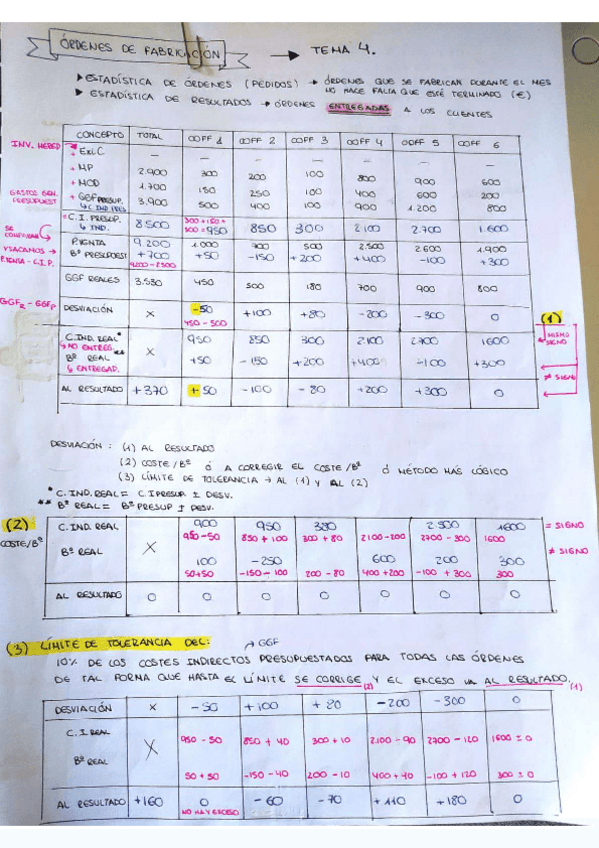 ÓRDENES DE FABRICACIÓN → TEMA 4.
▸ ESTADÍSTICA DE ÓRDENES (PEDIDOS) → ÓRDENES QUE SE FABRICAN DURANTE EL MES
NO HACE FALTA QUE ESTÉ TERMINADO (€)
▸ ESTADÍSTICA DE RESULTADOS → ÓRDENES ENTREGADAS A LOS CLIENTES
CONCEPTO TOTAL OOFF 1 OOFF 2 OOFF 3 OOFF 4 OOFF 5 OOFF 6
INV. HERED + ExiC — — — — — — —
+ MP 2.900 300 200 100 800 900 600
+ MOD 1.700 150 250 100 400 600 200
GASTOS GEN. PRESUPUEST + GGF PRESUP. 3.900 500 400 100 900 1.200 800
↳ C. IND PRES
= C.I. PRESUP. 8.500 300+150+500=950 850 300 2.100 2.700 1.600
↳ IND.
P.VENTA 9.200 1.000 700 500 2.500 2.600 1.900
Bº PRESUPUEST +700 +50 -150 +200 +400 -100 +300
9200-8500
SE COMPARAN Y SACAMOS → P.VENTA - C.I.P.
GGF REALES 3.530 450 500 180 700 900 800
GGFR - GGFP
DESVIACIÓN X -50 +100 +80 -200 -300 0
450-500
(1)
C.IND REAL* X 950 850 300 2100 2700 1600 MISMO SIGNO
↳ NO ENTREG.
Bº REAL ** +50 -150 +200 +400 -100 +300
↳ ENTREGAD.
≠ SIGNO
AL RESULTADO +370 +50 -100 -80 +200 +300 0
DESVIACIÓN: (1) AL RESULTADO
(2) COSTE/Bº ó A CORREGIR EL COSTE/Bº ó MÉTODO MAS LÓGICO
(3) LÍMITE DE TOLERANCIA → AL (1) Y AL (2)
* C. IND. REAL = C.I PRESUP. ± DESV.
** Bº REAL = Bº PRESUP ± DESV.
(2) C. IND. REAL X 900 950 380 2.900 1600 = SIGNO
COSTE/Bº 950-50 850+100 300+80 2100-200 2700-300 1600
Bº REAL 100 -250 600 200 300 ≠ SIGNO
50+50 -150-100 200-80 400+200 -100+300 300
AL RESULTADO 0 0 0 0 0 0 0
(3) LÍMITE DE TOLERANCIA DEL: → GGF
10% DE LOS COSTES INDIRECTOS PRESUPUESTADOS PARA TODAS LAS ÓRDENES
DE TAL FORMA QUE HASTA EL LÍMITE SE CORRIGE (2) Y EL EXCESO VA AL RESULTADO. (1)
DESVIACIÓN X -50 +100 +80 -200 -300 0
C.I. REAL X 950-50 850+40 300+10 2100-90 2700-120 1600±0
Bº REAL 50+50 -150-40 200-10 400+90 -100+120 300±0
AL RESULTADO +160 0 -60 -70 +110 +180 0
NO HAY EXCESO